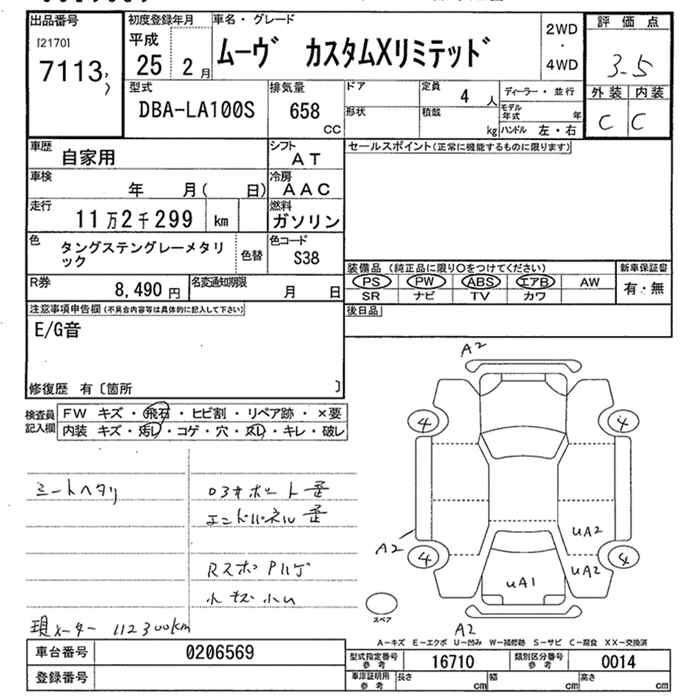 出品番号 初度登録年月 車名・グレード 評価点
[2170] 7113 平成 25 2月 ムーヴ カスタムXリミテッド 2WD・4WD 3.5
外装 内装
C C
型式 DBA-LA100S 排気量 658 CC ドア 形状 定員 4人 積載 kg ディーラー・並行 モデル年式 年 ハンドル 左・右
車歴 自家用 シフト AT セールスポイント(正常に機能するものに限ります)
車検 年 月( 日) 冷房 AAC
走行 11万2千299 km 燃料 ガソリン
色 タングステングレーメタリック 色替 色コード S38
装備品 (純正品に限り○をつけてください) 新車保証書
PS PW ABS エアB AW 有・無
SR ナビ TV カワ
R券 8,490円 名変通知期限 月 日 後日品
注意事項申告欄 (不具合内容等は具体的に記入して下さい)
E/G音
修復歴 有〔箇所 〕
検査員記入欄 FW キズ・飛石・ヒビ割・リペア跡・×要
内装 キズ・汚し・コゲ・穴・スレ・キレ・破レ
シートヘタリ
エンドパネル歪
現メーター 112300km
A2
4 4
UA2
A2 4 UA2 4
UA1
スペア
A2
A-キズ E-エクボ U-凹み W-補修跡 S-サビ C-腐食 XX-交換済
車台番号 0206569 型式指定番号 参考 16710 類別区分番号 参考 0014
登録番号 車庫証明用 参考 長さ cm 幅 cm 高さ cm